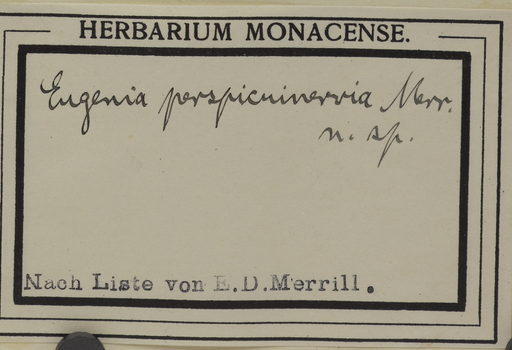 HERBARIUM MONACENSE.
Eugenia perspicuinervia Merr.
n. sp.
Nach Liste von E.D.Merrill.